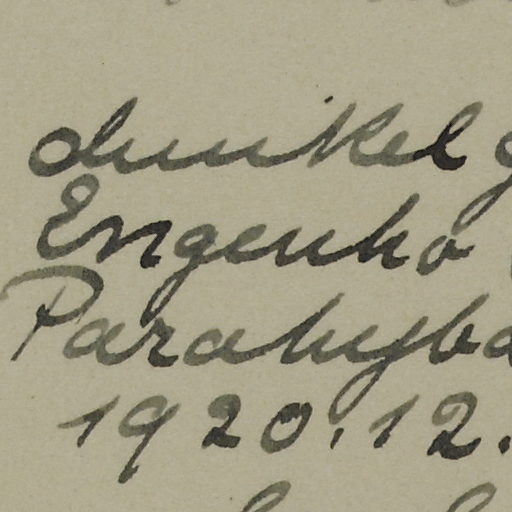 dunkel g
Engenho
Parahyba
1920.12.